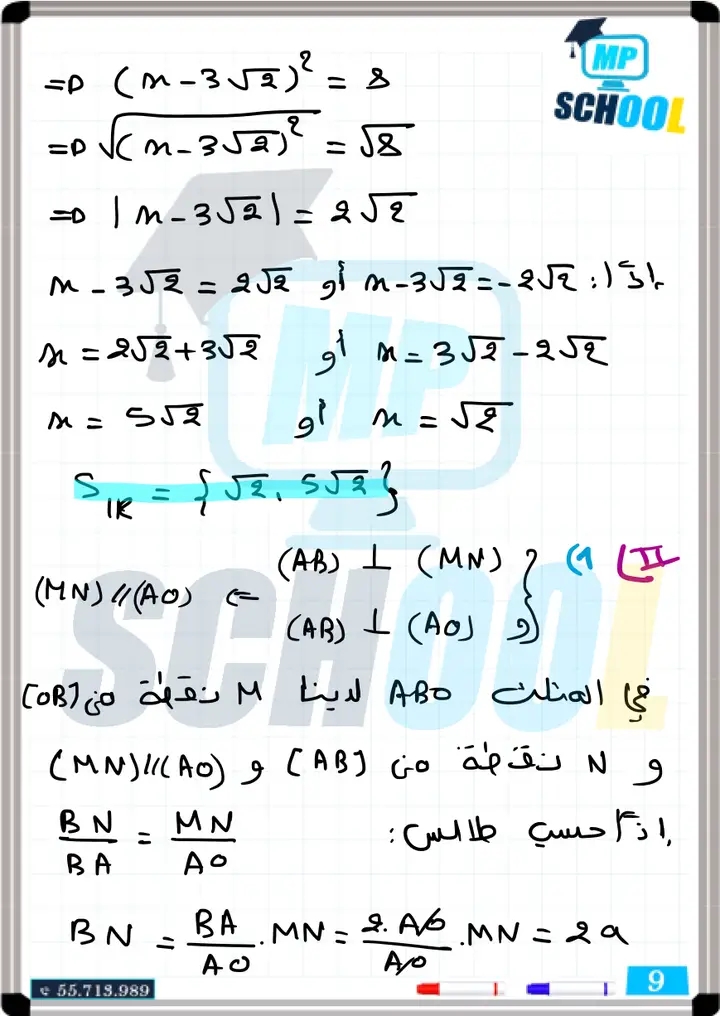 MP
SCHOOL
=> (x - 3√2)² = 8
=> √(x - 3√2)² = √8
=> |x - 3√2| = 2√2
إذا: x - 3√2 = -2√2 أو x - 3√2 = 2√2
x = 2√2 + 3√2 أو x = 3√2 - 2√2
x = 5√2 أو x = √2
S_IR = {√2, 5√2}
II) 1) (AB) ⊥ (MN)
و (AB) ⊥ (AO) } => (MN) // (AO)
في المثلث ABO لدينا M نقطة من [OB]
و N نقطة من [AB] و (MN) // (AO)
إذا حسب طالس: BN/BA = MN/AO
BN = BA/AO . MN = 2.AO/AO . MN = 2a
55.713.989
9